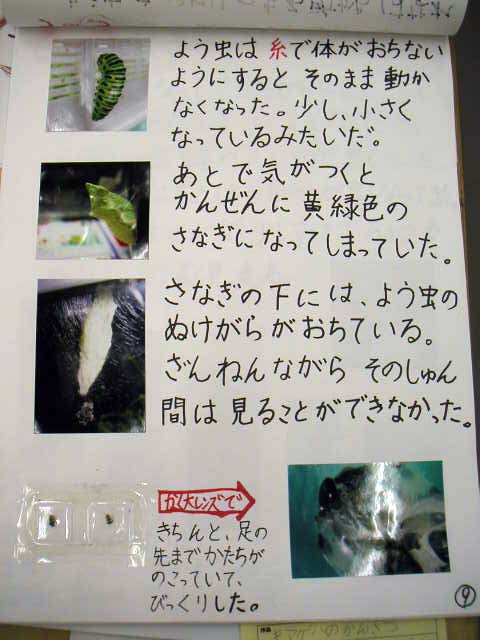 よう虫は糸で体がおちない
ようにすると そのまま動か
なくなった。少し、小さく
なっているみたいだ。
あとで気がつくと
かんぜんに黄緑色の
さなぎになってしまっていた。
さなぎの下には、よう虫の
ぬけがらがおちている。
ざんねんながら そのしゅん
間は見ることができなかった。
かく大レンズで
きちんと、足の
先までかたちが
のこっていて、
びっくりした。
9